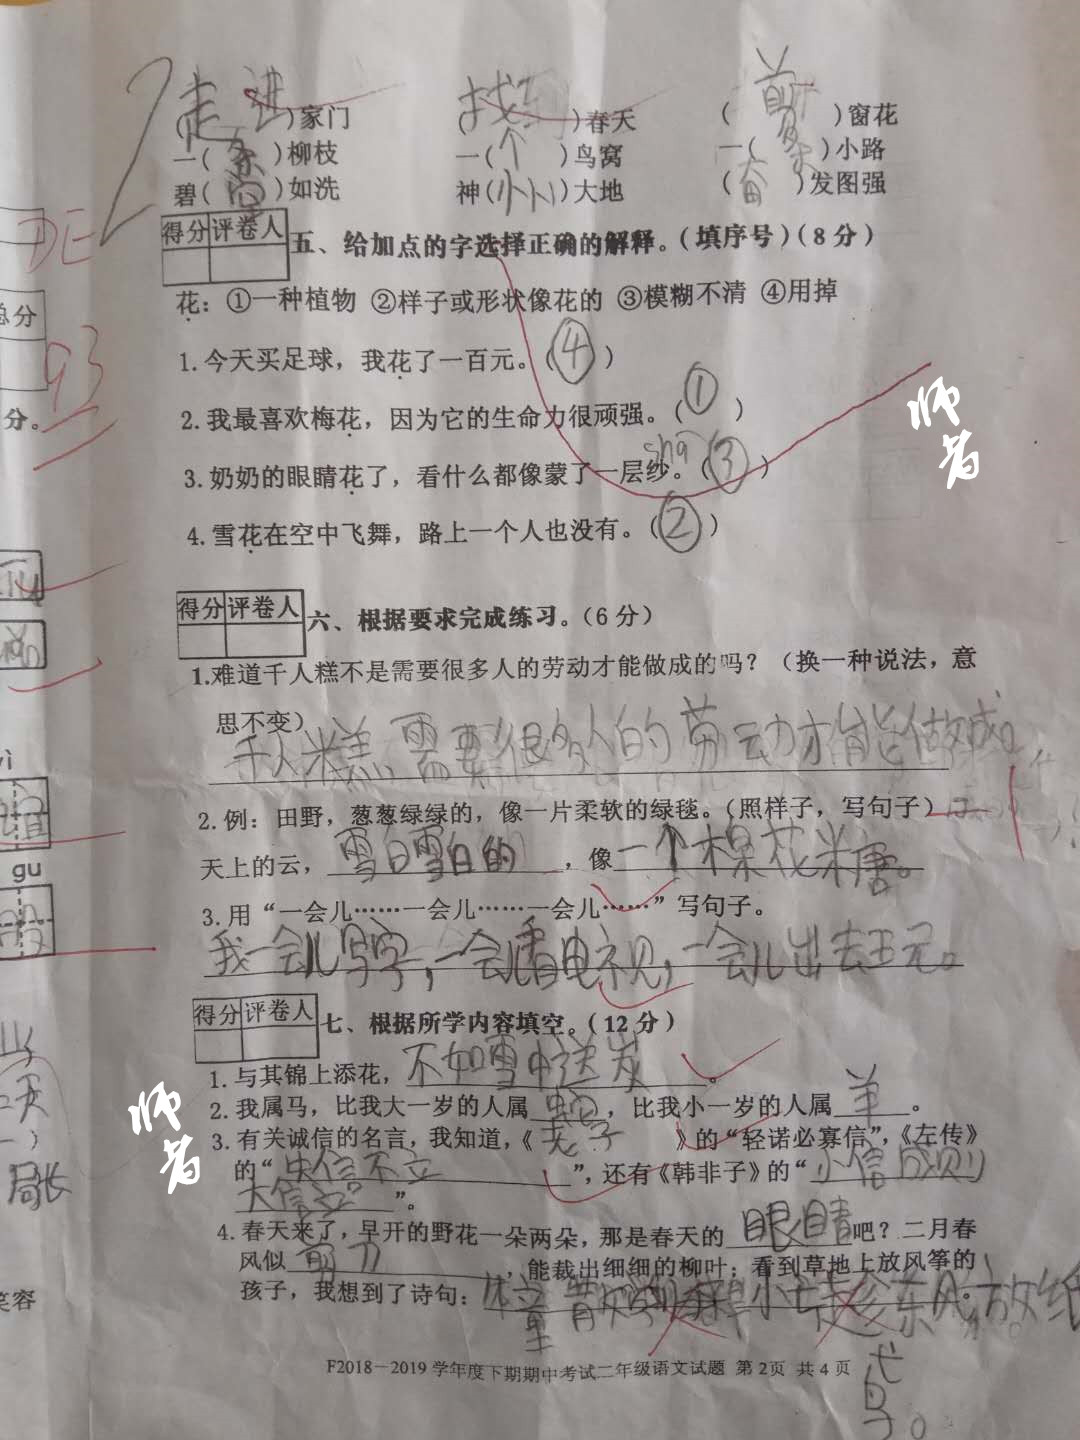 (走进)家门 (找到)春天 (剪)窗花
一(条)柳枝 一(个)鸟窝 一(条)小路
碧(空)如洗 神(州)大地 (奋)发图强
得分 评卷人
五、给加点的字选择正确的解释。(填序号)(8分)
花：①一种植物 ②样子或形状像花的 ③模糊不清 ④用掉
1.今天买足球，我花了一百元。(④)
2.我最喜欢梅花，因为它的生命力很顽强。(①)
shā
3.奶奶的眼睛花了，看什么都像蒙了一层纱。(③)
4.雪花在空中飞舞，路上一个人也没有。(②)
得分 评卷人
六、根据要求完成练习。(6分)
1.难道千人糕不是需要很多人的劳动才能做成的吗？(换一种说法，意
思不变)
千人糕需要很多人的劳动才能做成。
2.例：田野，葱葱绿绿的，像一片柔软的绿毯。(照样子，写句子)
天上的云，雪白雪白的，像一个棉花米糖。
3.用“一会儿……一会儿……一会儿……”写句子。
我一会儿写字，一会儿看电视，一会儿出去玩。
得分 评卷人
七、根据所学内容填空。(12分)
1.与其锦上添花，不如雪中送炭。
2.我属马，比我大一岁的人属蛇，比我小一岁的人属羊。
3.有关诚信的名言，我知道，《老子》的“轻诺必寡信”，《左传》
的“失信不立”，还有《韩非子》的“小信成则
大信立”。
4.春天来了，早开的野花一朵两朵，那是春天的眼睛吧？二月春
风似剪刀，能裁出细细的柳叶；看到草地上放风筝的
孩子，我想到了诗句：
F2018－2019学年度下期期中考试二年级语文试题 第2页 共4页
师者
师者
93
总分
分。
gu
局长
笑容